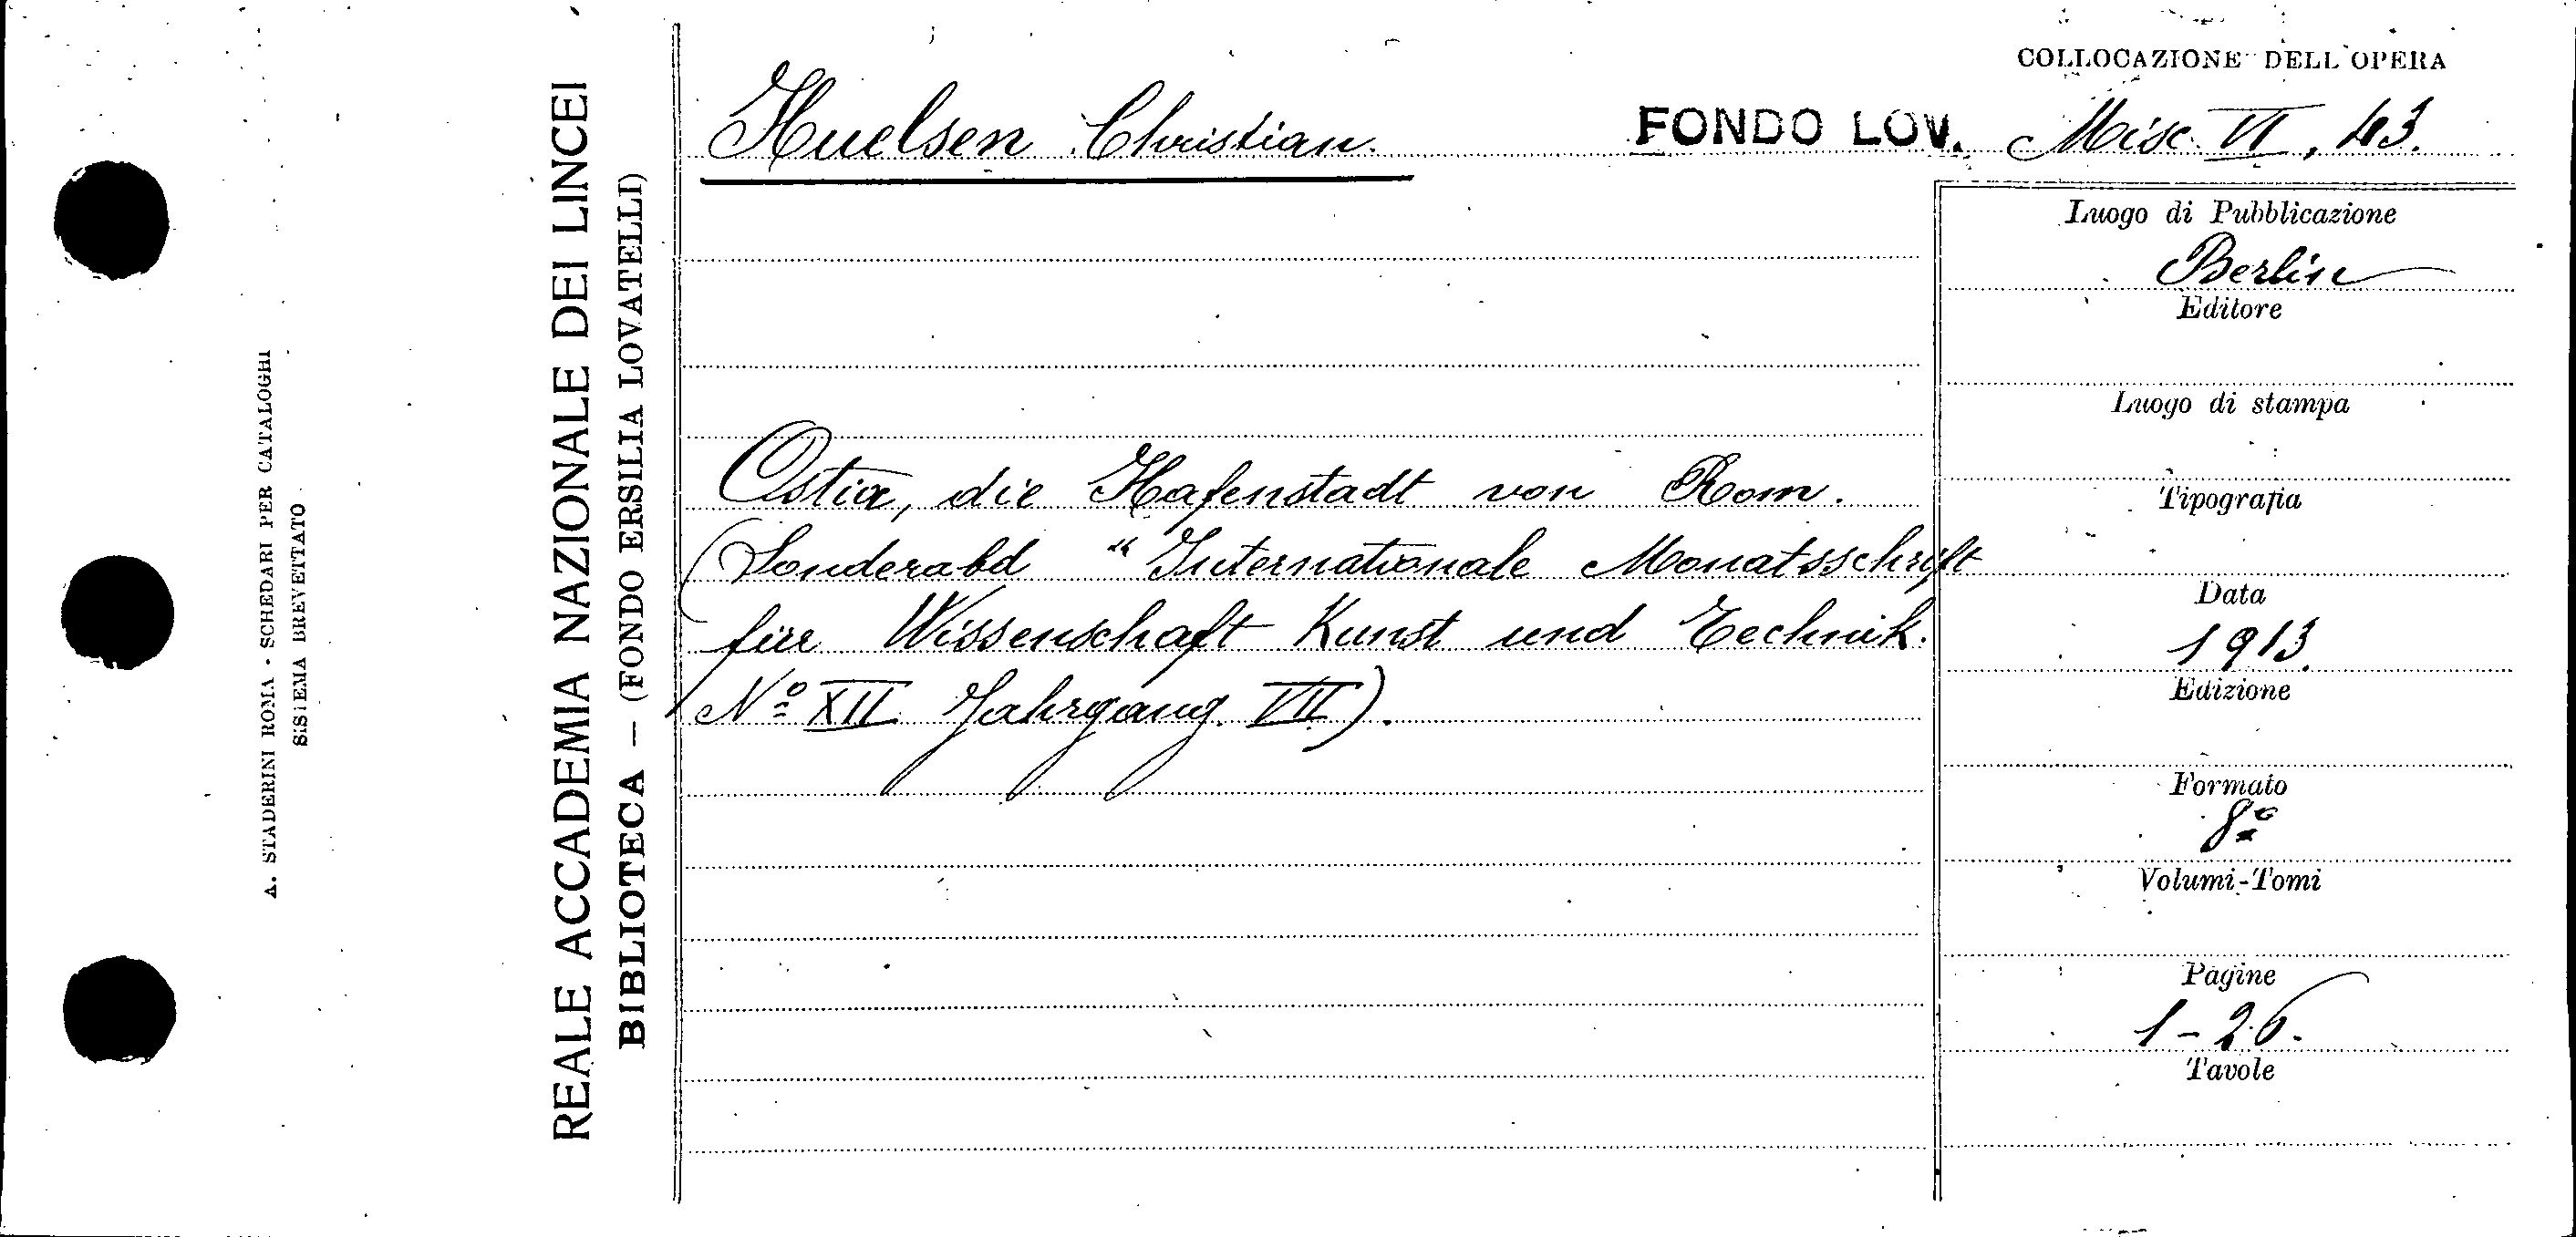 A. STADERINI ROMA - SCHEDARI PER CATALOGHI
SISTEMA BREVETTATO
REALE ACCADEMIA NAZIONALE DEI LINCEI
BIBLIOTECA — (FONDO ERSILIA LOVATELLI)
COLLOCAZIONE DELL'OPERA
Huelsen Christian.
FONDO LOV. Misc. VI, 43.
Ostia, die Hafenstadt von Rom.
(Sonderabd "Internationale Monatsschrift
für Wissenschaft Kunst und Technik.
Nº XII Jahrgang. VII).
Luogo di Pubblicazione
Berlin
Editore
Luogo di stampa
Tipografia
Data
1913.
Edizione
Formato
8º
Volumi-Tomi
Pagine
1-26.
Tavole